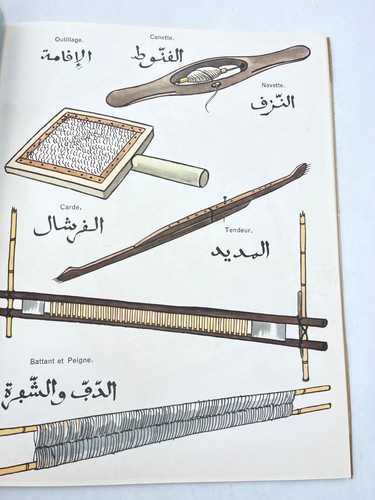 Outillage.
الإقامة
Canette.
الڨنّوط
Navette.
النّزف
Carde.
الفرشال
Tendeur.
المديد
Battant et Peigne.
الدّفّ والشّفرة